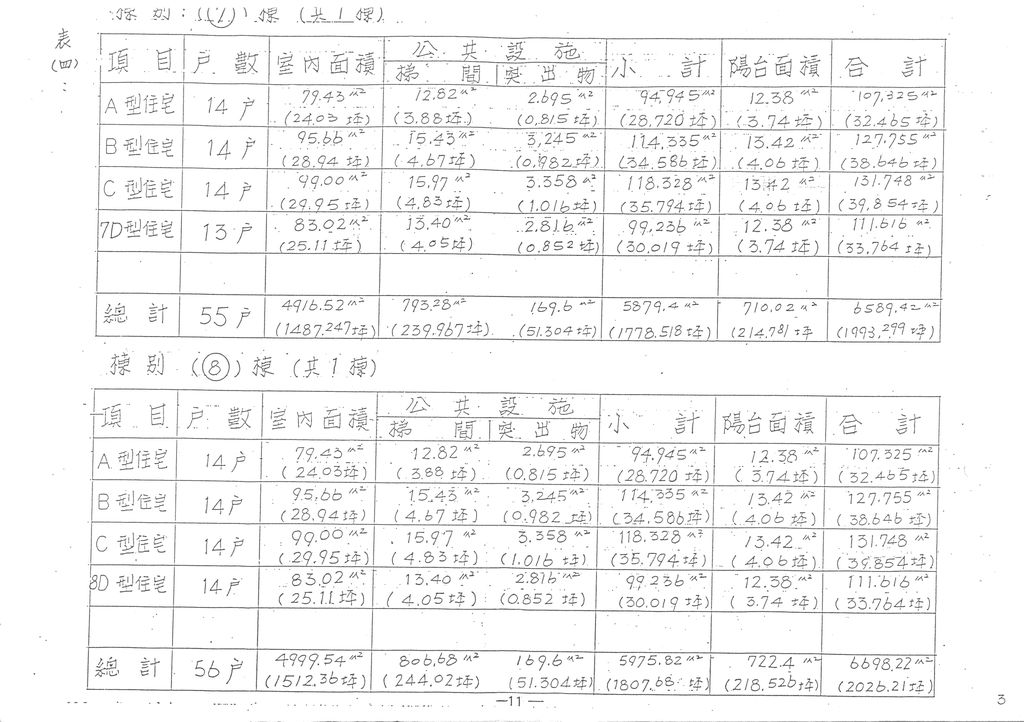 棟別:(⑦)棟(共1棟)
表(四):
項目 户數 室內面積 公共設施 小計 陽台面積 合計
梯間 突出物
A型住宅 14户 79.43m² 12.82m² 2.695m² 94.945m² 12.38m² 107.325m²
(24.03坪) (3.88坪) (0.815坪) (28.720坪) (3.74坪) (32.465坪)
B型住宅 14户 95.66m² 15.43m² 3.245m² 114.335m² 13.42m² 127.755m²
(28.94坪) (4.67坪) (0.982坪) (34.586坪) (4.06坪) (38.646坪)
C型住宅 14户 99.00m² 15.97m² 3.358m² 118.328m² 13.42m² 131.748m²
(29.95坪) (4.83坪) (1.016坪) (35.794坪) (4.06坪) (39.854坪)
7D型住宅 13户 83.02m² 13.40m² 2.816m² 99.236m² 12.38m² 111.616m²
(25.11坪) (4.05坪) (0.852坪) (30.019坪) (3.74坪) (33.764坪)
總計 55户 4916.52m² 793.28m² 169.6m² 5879.4m² 710.02m² 6589.42m²
(1487.247坪) (239.967坪) (51.304坪) (1778.518坪) (214.781坪 (1993.299坪)
棟別(⑧)棟(共1棟)
項目 户數 室內面積 公共設施 小計 陽台面積 合計
梯間 突出物
A型住宅 14户 79.43m² 12.82m² 2.695m² 94.945m² 12.38m² 107.325m²
(24.03坪) (3.88坪) (0.815坪) (28.720坪) (3.74坪) (32.465坪)
B型住宅 14户 95.66m² 15.43m² 3.245m² 114.335m² 13.42m² 127.755m²
(28.94坪) (4.67坪) (0.982坪) (34.586坪) (4.06坪) (38.646坪)
C型住宅 14户 99.00m² 15.97m² 3.358m² 118.328m² 13.42m² 131.748m²
(29.95坪) (4.83坪) (1.016坪) (35.794坪) (4.06坪) (39.854坪)
8D型住宅 14户 83.02m² 13.40m² 2.816m² 99.236m² 12.38m² 111.616m²
(25.11坪) (4.05坪) (0.852坪) (30.019坪) (3.74坪) (33.764坪)
總計 56户 4999.54m² 806.68m² 169.6m² 5975.82m² 722.4m² 6698.22m²
(1512.36坪) (244.02坪) (51.304坪) (1807.68坪) (218.526坪) (2026.21坪)
—11—
3